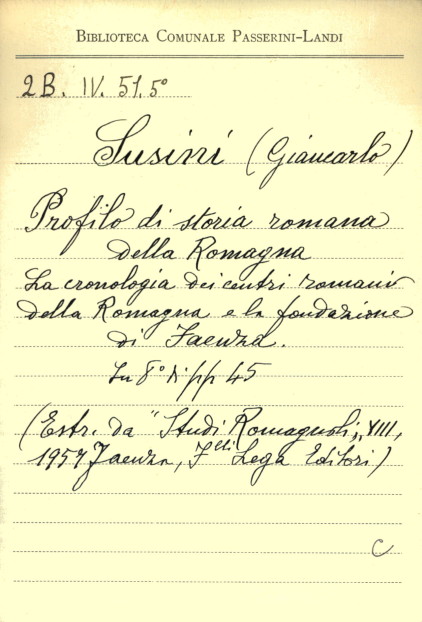 BIBLIOTECA COMUNALE PASSERINI-LANDI
2B. IV. 51.5°
Susini (Giancarlo)
Profilo di storia romana
della Romagna
La cronologia dei centri romani
della Romagna e la fondazione
di Faenza.
In 8° di pp 45
(Estr. da "Studi Romagnoli„, VIII,
1957 Faenza, F.lli Lega Editori)
C